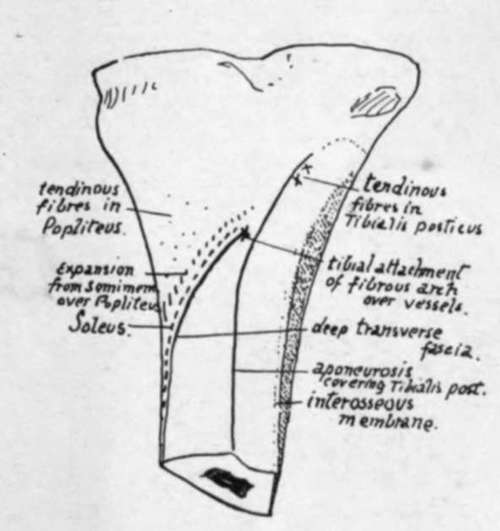 tendinous
fibres in
Popliteus.
Expansion
from Semimem
over Popliteus
Soleus.
tendinous
fibres in
Tibialis posticus
tibial attachment
of fibrous arch
over vessels.
deep transverse
fascia.
aponeurosis
covering Tibialis post.
interosseous
membrane.